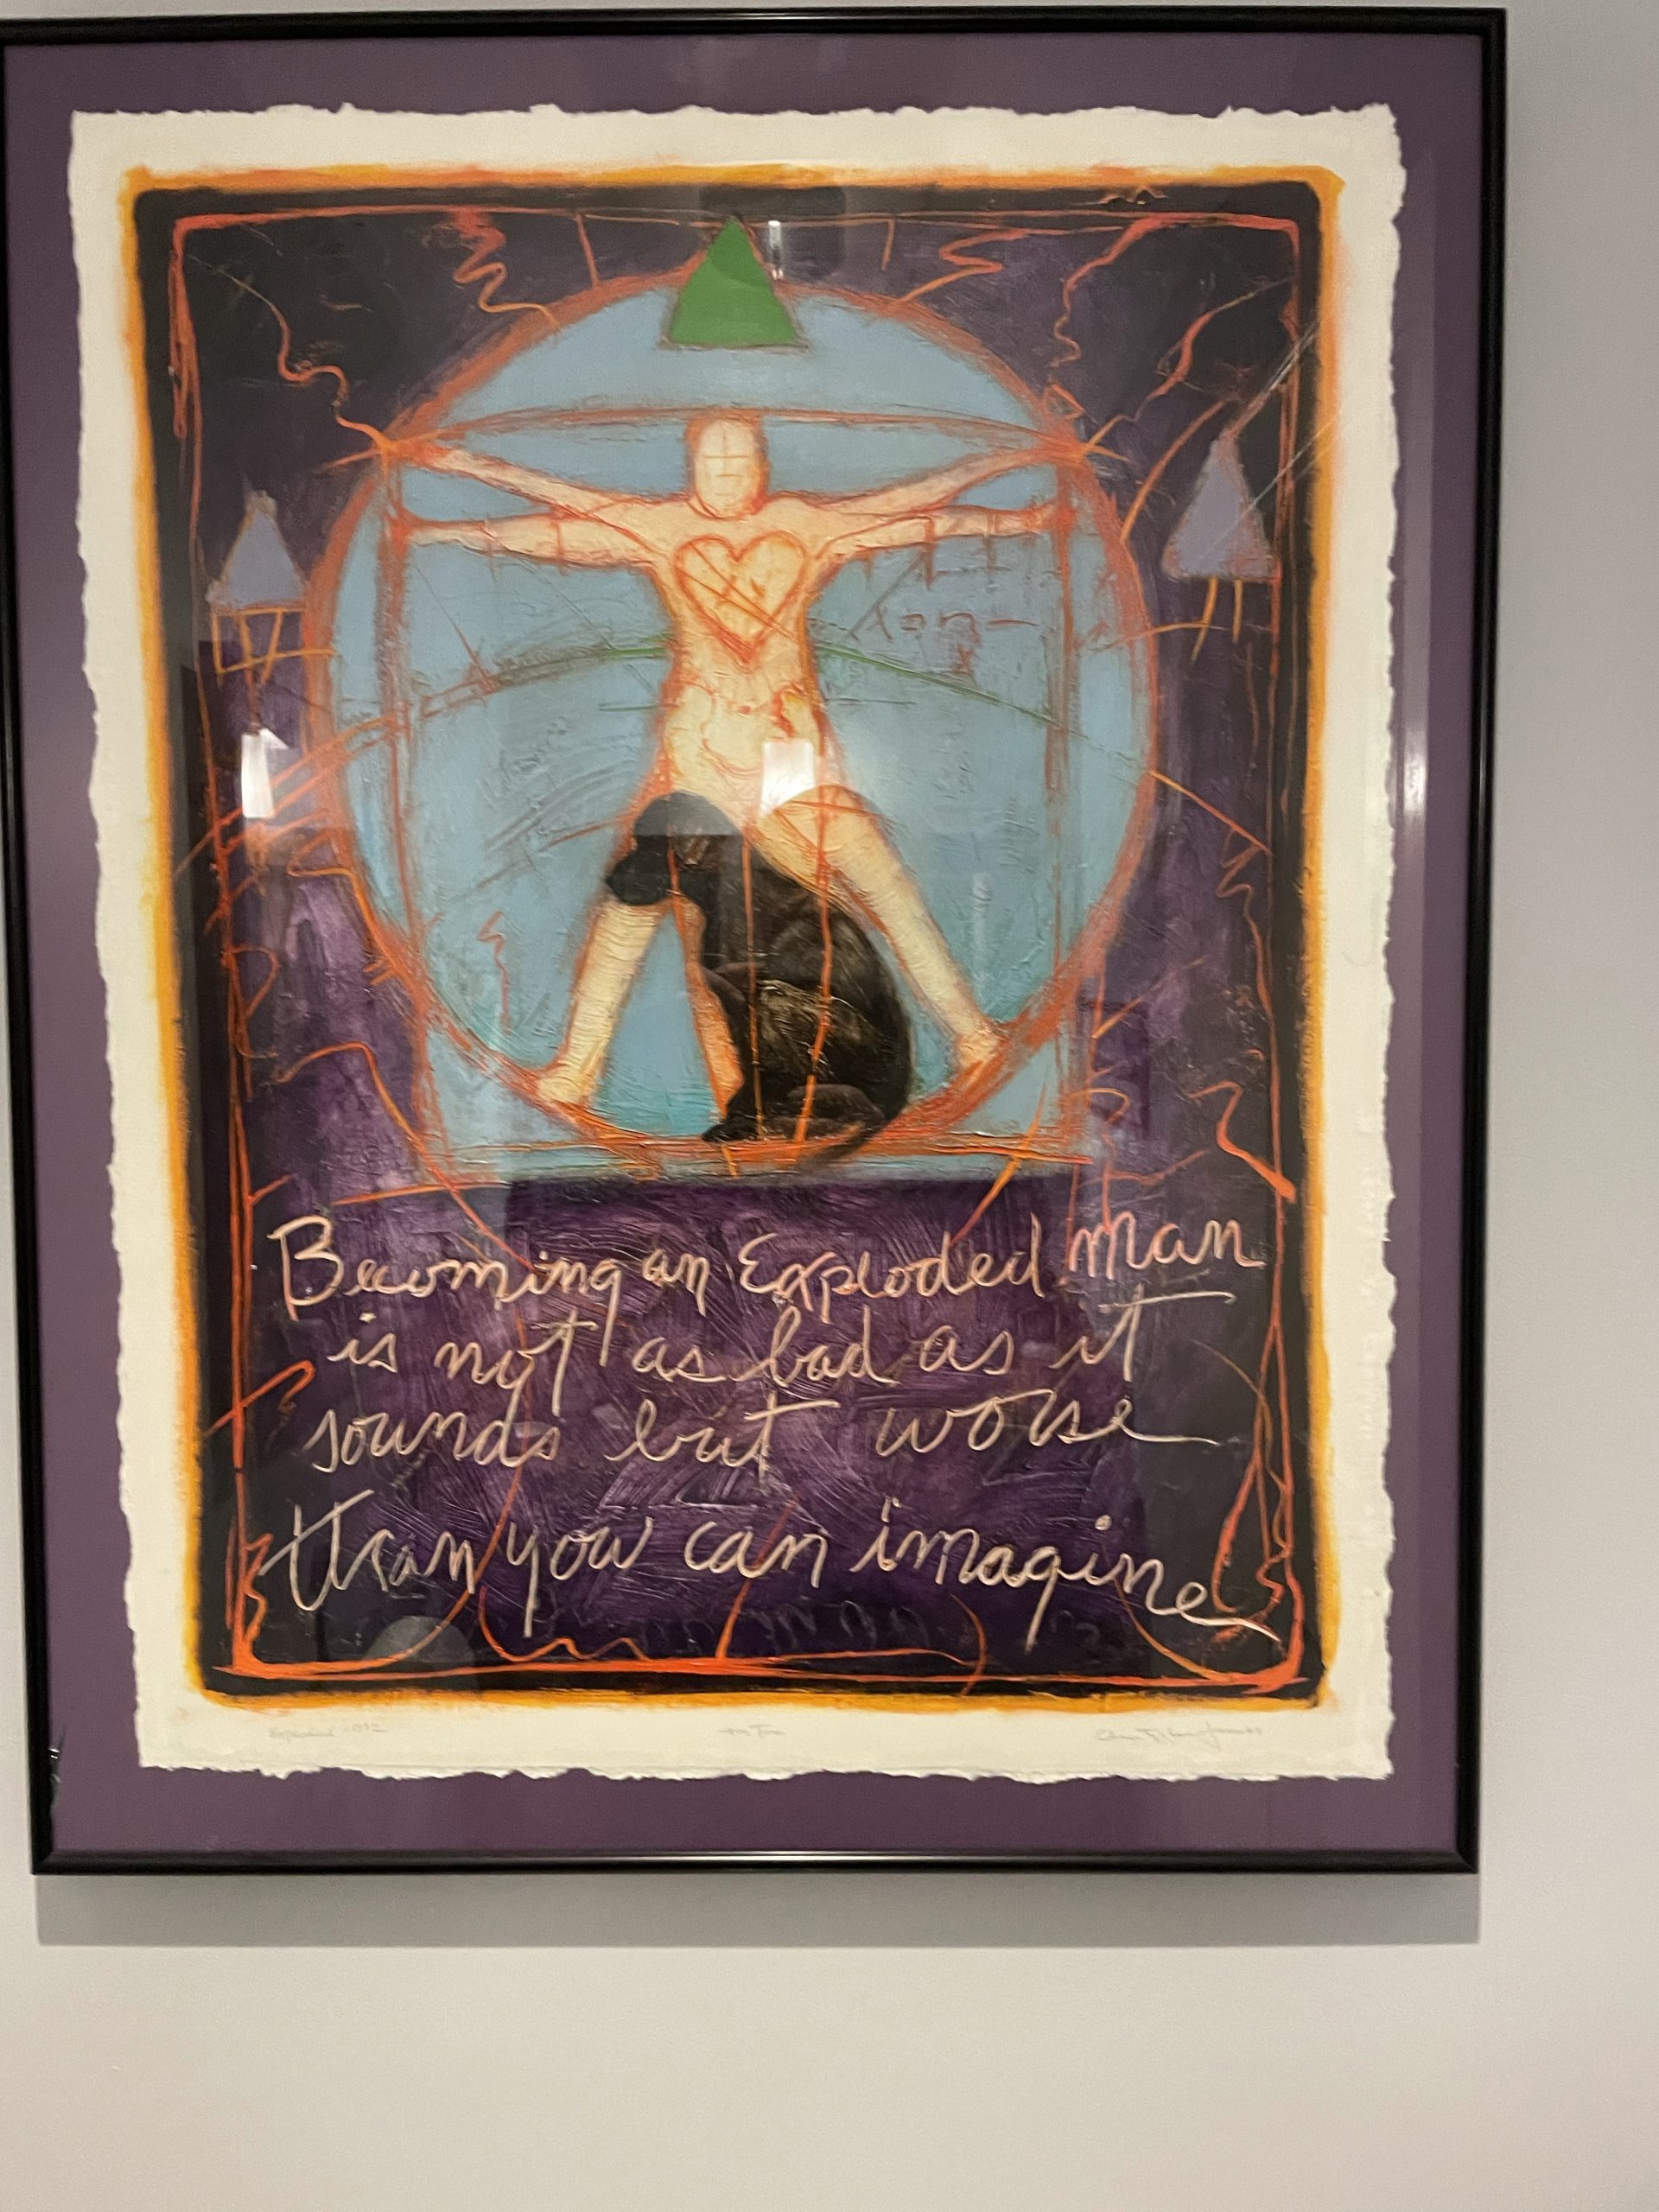 Becoming an Exploded man
is not as bad as it
sounds but worse
than you can imagine